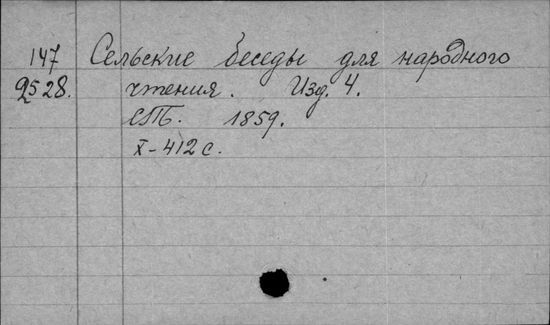 147 Сельские беседы для народного
2528. чтения. Изд. 4.
СПБ. 1859.
X-412 с.